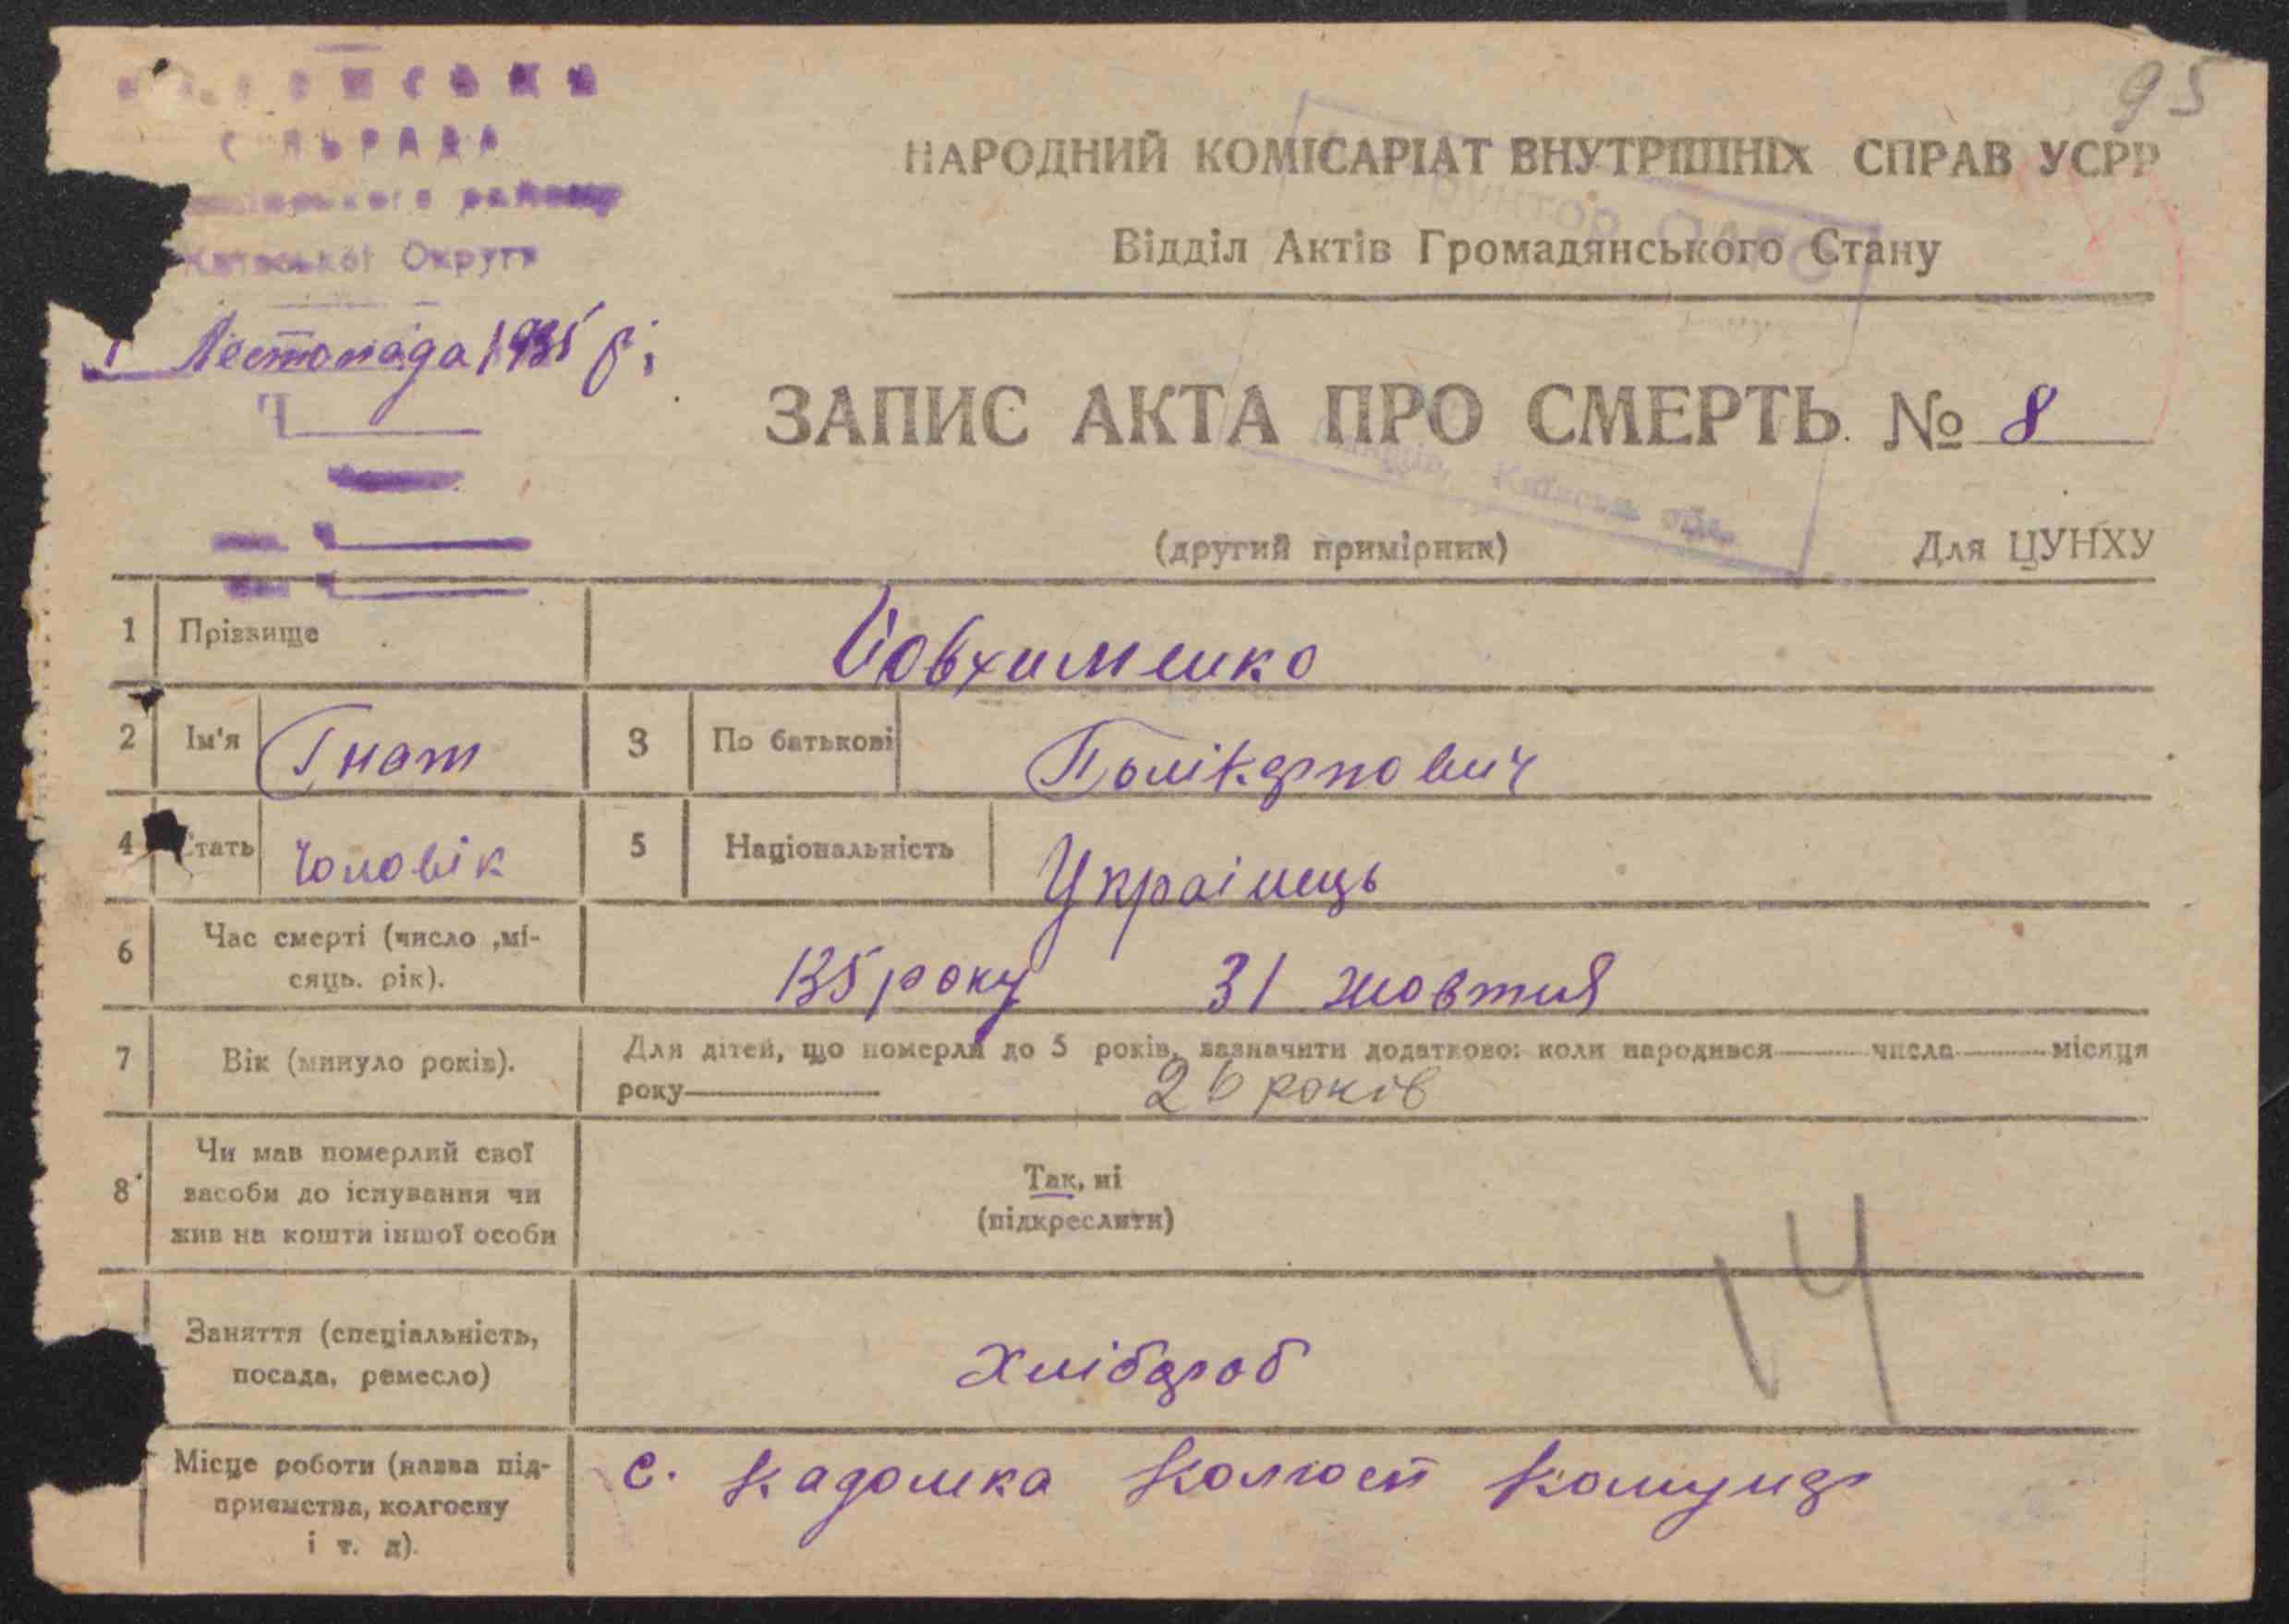 95
СІЛЬРАДА
району
Київської Округи
1 Листопада 1935 р.
НАРОДНИЙ КОМІСАРІАТ ВНУТРІШНІХ СПРАВ УСРР
Відділ Актів Громадянського Стану
ЗАПИС АКТА ПРО СМЕРТЬ № 8
Київська обл.
(другий примірник) Для ЦУНХУ
1 Прізвище Йовхименко
2 Ім'я Гнат 3 По батькові Полікарпович
4 Стать Чоловік 5 Національність Украінець
6 Час смерті (число ,мі-
сяць. рік).
135 року 31 жовтня
7 Вік (минуло років). Для дітей, що померли до 5 років, зазначити додатково: коли народився числа місяця
року 26 років
8 Чи мав померлий свої
засоби до існування чи
жив на кошти іншої особи
Так, ні
(підкреслити)
14
Заняття (спеціальність,
посада, ремесло)
Хлібороб
Місце роботи (назва під-
приємства, колгоспу
і т. д).
с. Кадомка Колгосп